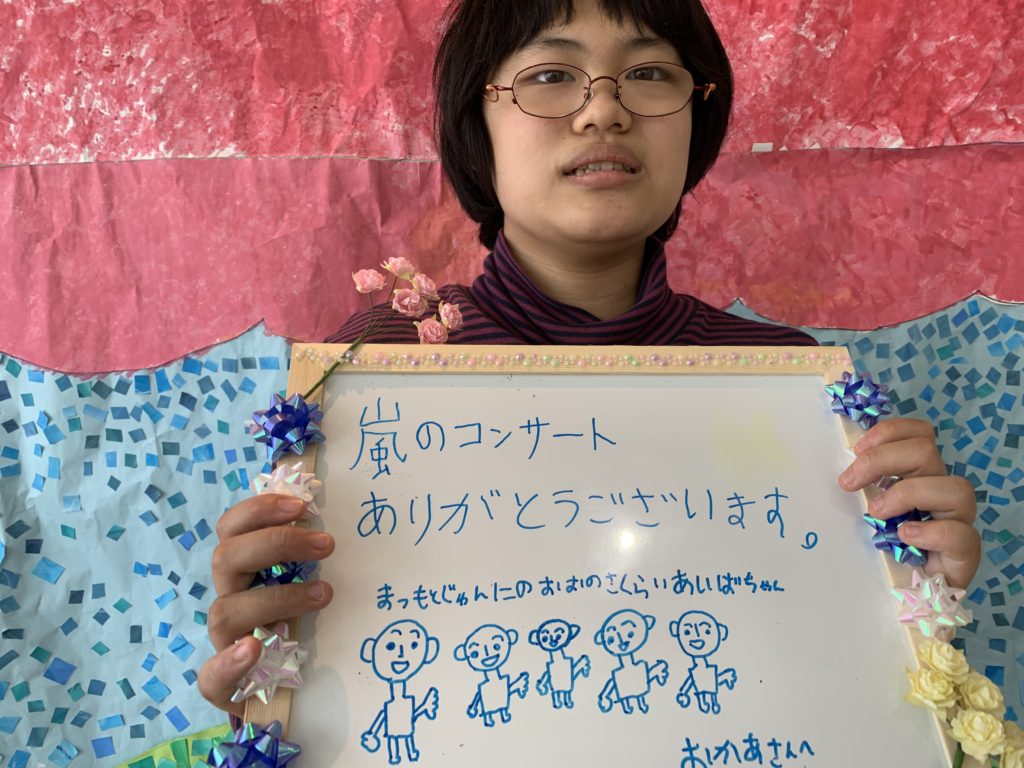 嵐のコンサート
ありがとうございます。
まつもとじゅんにのおおのさくらいあいばちゃん
おかあさんへ